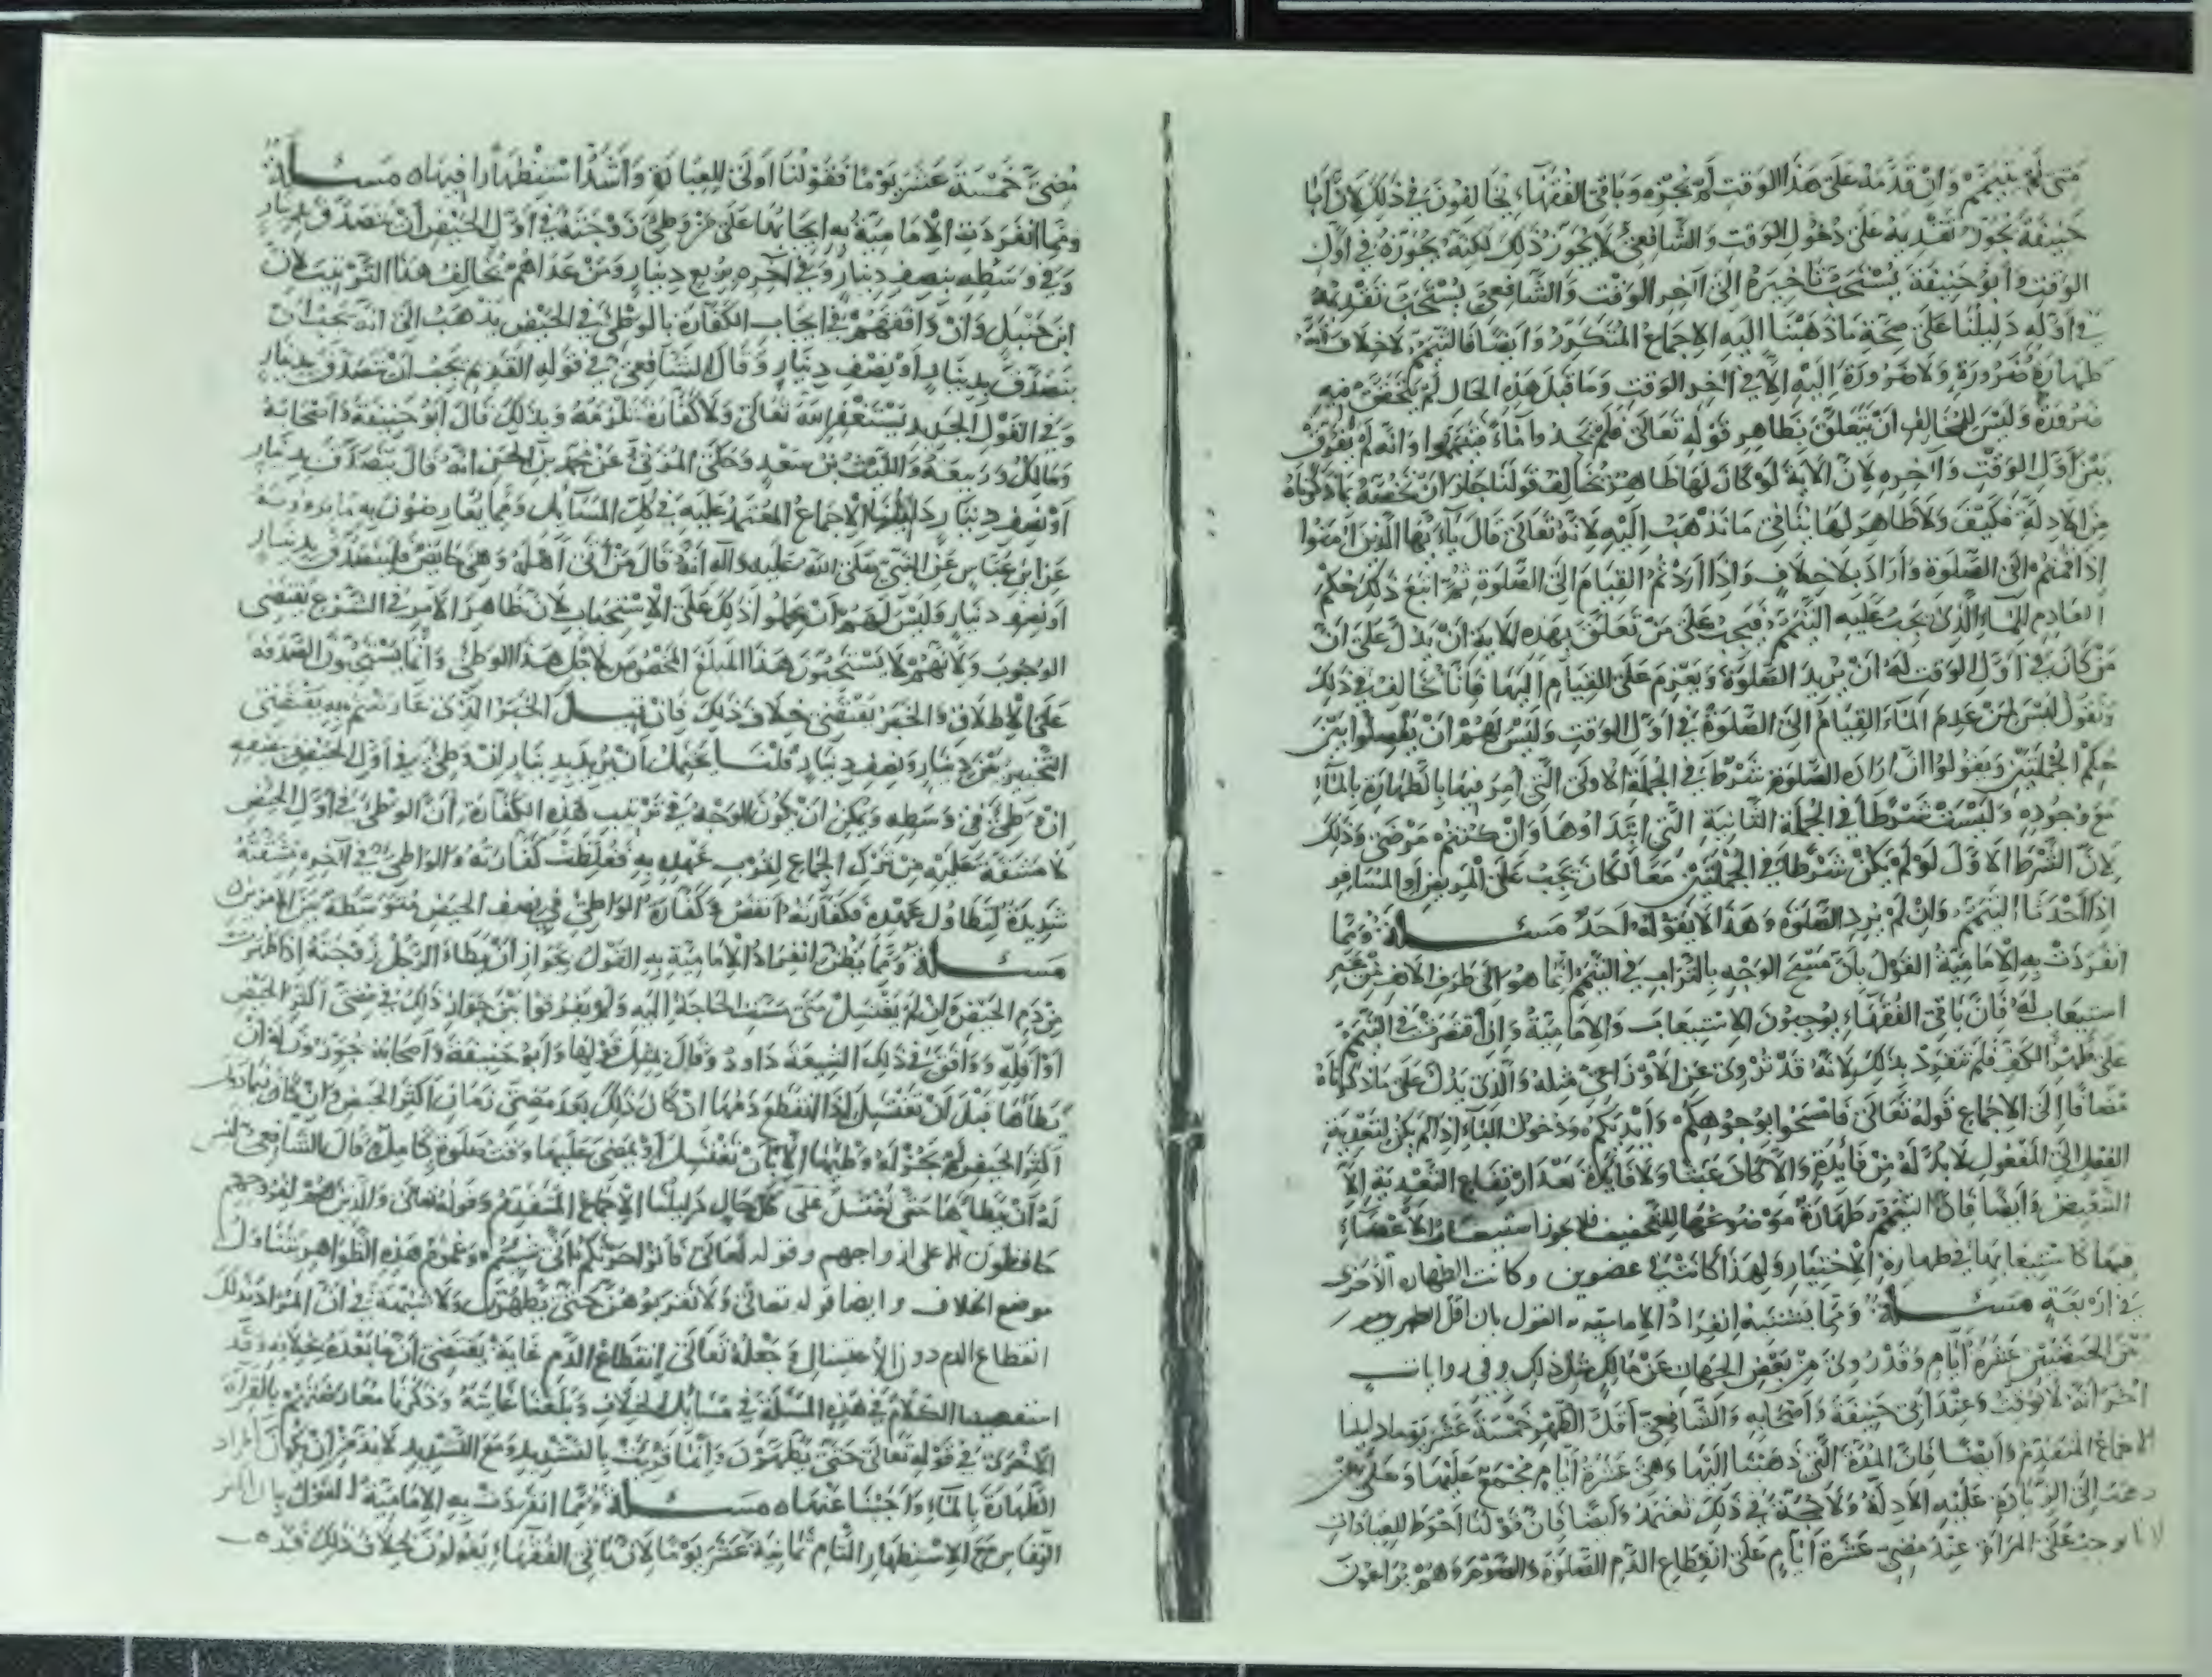 متى لم يتيمم وان قدمه على هذا الوقت لم يجزه وباقي الفقهاء يخالفون في ذلك لان ابا
حنيفة يجوز تقديمه على دخول الوقت والشافعي لا يجوز ذلك لكنه يجوزه في اول
الوقت وابو حنيفة يستحب تاخيره الى آخر الوقت والشافعي يستحب تقديمه
في اوله دليلنا على صحة ما ذهبنا اليه الاجماع المتكرر وايضا فالتيمم لا خلاف انه
طهارة ضرورة ولا ضرورة اليه الا في آخر الوقت وما قبل هذه الحال لم يتحقق فيه
ضرورة وليس للمخالف ان يتعلق بظاهر قوله تعالى فلم تجدوا ماء فتيمموا وانه لم يفرق
بين اول الوقت وآخره لان الآية لو كان لها ظاهر يخالف قولنا جاز ان نخصه بما ذكرناه
من الادلة فكيف ولا ظاهر لها ينافي ما نذهب اليه لانه تعالى قال يا ايها الذين آمنوا
اذا قمتم الى الصلوة واراد بلا خلاف واذا اردتم القيام الى الصلوة ثم اتبع ذلك حكم
العادم للماء الذي يجب عليه التيمم فيجب على من تعلق بهذه الآية ان يدل على ان
من كان في اول الوقت له ان يريد الصلوة ويعزم على القيام اليها فانا نخالف في ذلك
ونقول ليس لمن عدم الماء القيام الى الصلوة في اول الوقت وليس لهم ان يفصلوا بين
حكم الجملتين ويقولوا ان ارادة الصلوة شرط في الجملة الاولى التي امر فيها بالطهارة بالماء
مع وجوده وليست شرطا في الجملة الثانية التي ابتداؤها وان كنتم مرضى وذلك
لان الشرط الاول لو لم يكن شرطا في الجملتين معا لكان يجب على المريض او المسافر
اذا احدثا التيمم وان لم يرد الصلوة وهذا لا يقوله احد مسئلة ومما
انفردت به الامامية القول بان مسح الوجه بالتراب في التيمم انما هو الى طرف الانف من غير
استيعاب له فان باقي الفقهاء يوجبون الاستيعاب والامامية وان اقتصرت في التيمم
على ظهر الكف فلم تنفرد بذلك لانه قد روي عن الاوزاعي مثله والذي يدل على ما ذكرناه
مضافا الى الاجماع قوله تعالى فامسحوا بوجوهكم وايديكم ودخول الباء اذا لم يكن لتعدية
الفعل الى المفعول لا بد له من فايدة والا كان عبثا ولا فايدة بعد ارتفاع التعدية الا
التبعيض وايضا فان التيمم طهارة موضوعها التخفيف فلا يجوز استيعاب الاعضاء
فيها كاستيعابها في طهارة الاختيار ولهذا كانت في عضوين وكانت الطهارة الاخرى
في اربعة مسئلة ومما يشتبه انفراد الامامية به القول بان اقل الطهر
بين الحيضتين عشرة ايام وقد روي من بعض الجهات عن مالك مثل ذلك وفي روايات
اخر انه لا يوقت وعند ابي حنيفة واصحابه والشافعي اقل الطهر خمسة عشر يوما دليلنا
الاجماع المتقدم وايضا فان المدة التي ذهبنا اليها وهي عشرة ايام مجمع عليها وعلى من
ذهب الى الزيادة عليه الادلة ولا حجة في ذلك تعتمد وايضا فان قولنا احوط للعبادات
لانا نوجب على المراة عند مضي عشرة ايام على انقطاع الدم الصلوة والصوم وهم يراعون
مضي خمسة عشر يوما فقولنا اولى للعبادة واشد استظهارا فيها مسئلة
ومما انفردت الامامية به ايجابها على من وطئ زوجته في اول الحيض ان يتصدق بدينار
وفي وسطه بنصف دينار وفي آخره بربع دينار ومن عداهم يخالف هذا الترتيب لان
ابن حنبل وان وافقهم في ايجاب الكفارة بالوطئ في الحيض يذهب الى انه يجب ان
يتصدق بدينار او بنصف دينار وقال الشافعي في قوله القديم يجب ان يتصدق بدينار
وفي القول الجديد يستغفر الله تعالى ولا كفارة تلزمه وبذلك قال ابو حنيفة واصحابه
ومالك وربيعة والليث بن سعد وحكى المزني عن محمد بن الحسن انه قال يتصدق بدينار
او نصف دينار دليلنا الاجماع المعتمد عليه في كل المسائل ومما يعارضون به ما يروونه
عن ابن عباس عن النبي صلى الله عليه وآله انه قال من اتى اهله وهي حائض فليتصدق بدينار
او نصف دينار وليس لهم ان يحملوا ذلك على الاستحباب لان ظاهر الامر في الشرع يقتضي
الوجوب ولانهم لا يستحبون هذا المبلغ المخصوص لاجل هذا الوطئ وانما يستحبون الصدقة
على الاطلاق والخبر يقتضي خلاف ذلك فان قيل الخبر الذي عارضتم به يقتضي
التخيير بين دينار ونصف دينار قلنا يحتمل ان يريد بدينار ان وطئ في اول الحيض بنصفه
ان وطئ في وسطه ويمكن ان يكون الوجه في ترتيب هذه الكفارة ان الوطئ في اول الحيض
لا مشقة عليه من ترك الجماع لقرب عهده به فغلظت كفارته والواطئ في آخره مشقته
شديدة لتطاول عهده فكفارته انقص وكفارة الواطئ في نصف الحيض متوسطة بين الامرين
مسئلة ومما يظن انفراد الامامية به القول بجواز ان يطاء الرجل زوجته اذا طهرت
من دم الحيض وان لم تغتسل متى مست الحاجة اليه ولم يفرقوا بين جواز ذلك في مضي اكثر الحيض
او اقله ووافق في ذلك الشيعة داود وقال بمثل قولها وابو حنيفة واصحابه يجوزون له ان
يطاها قبل ان تغتسل اذا انقطع دمها ان كان ذلك بعد مضي زمان اكثر الحيض وان كان فيما دون
اكثر الحيض لم يجز له وطيها الا بان تغتسل او يمضي عليها وقت صلوة كاملة قال الشافعي ليس
له ان يطاها حتى تغتسل على كل حال دليلنا الاجماع المتقدم وقوله تعالى والذين هم لفروجهم
حافظون الا على ازواجهم وقوله تعالى فاتوا حرثكم انى شئتم وعموم هذه الظواهر يتناول
موضع الخلاف وايضا قوله تعالى ولا تقربوهن حتى يطهرن ولا شبهة في ان المراد بذلك
انقطاع الدم دون الاغتسال وجعله تعالى انقطاع الدم غاية يقتضي ان ما بعده بخلافه وقد
استقصينا الكلام في هذه المسئلة في مسائل الخلاف وبلغنا غايته وذكرنا معارضتهم بالقراءة
الاخرى في قوله تعالى حتى يطهرن وانها قريت بالتشديد ومع التشديد لا بد من ان يكون المراد
الطهارة بالماء واجبنا عنها مسئلة ومما انفردت به الامامية القول بان اكثر
النفاس مع الاستظهار التام ثمانية عشر يوما لان باقي الفقهاء يقولون بخلاف ذلك